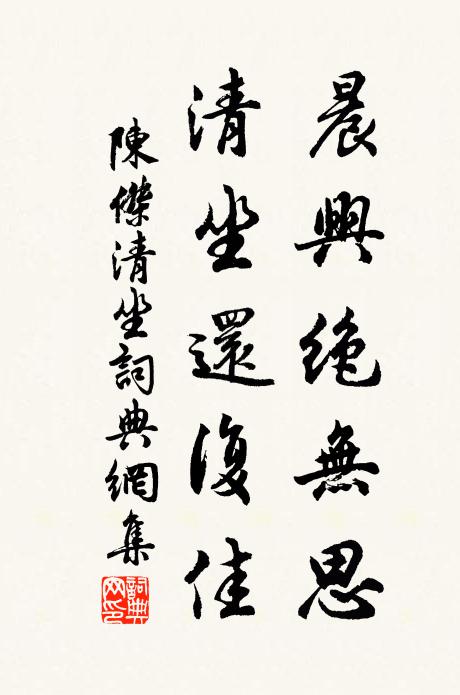 晨興絶無思
清坐還復佳
陳傑清坐詞典網集
詞典網印